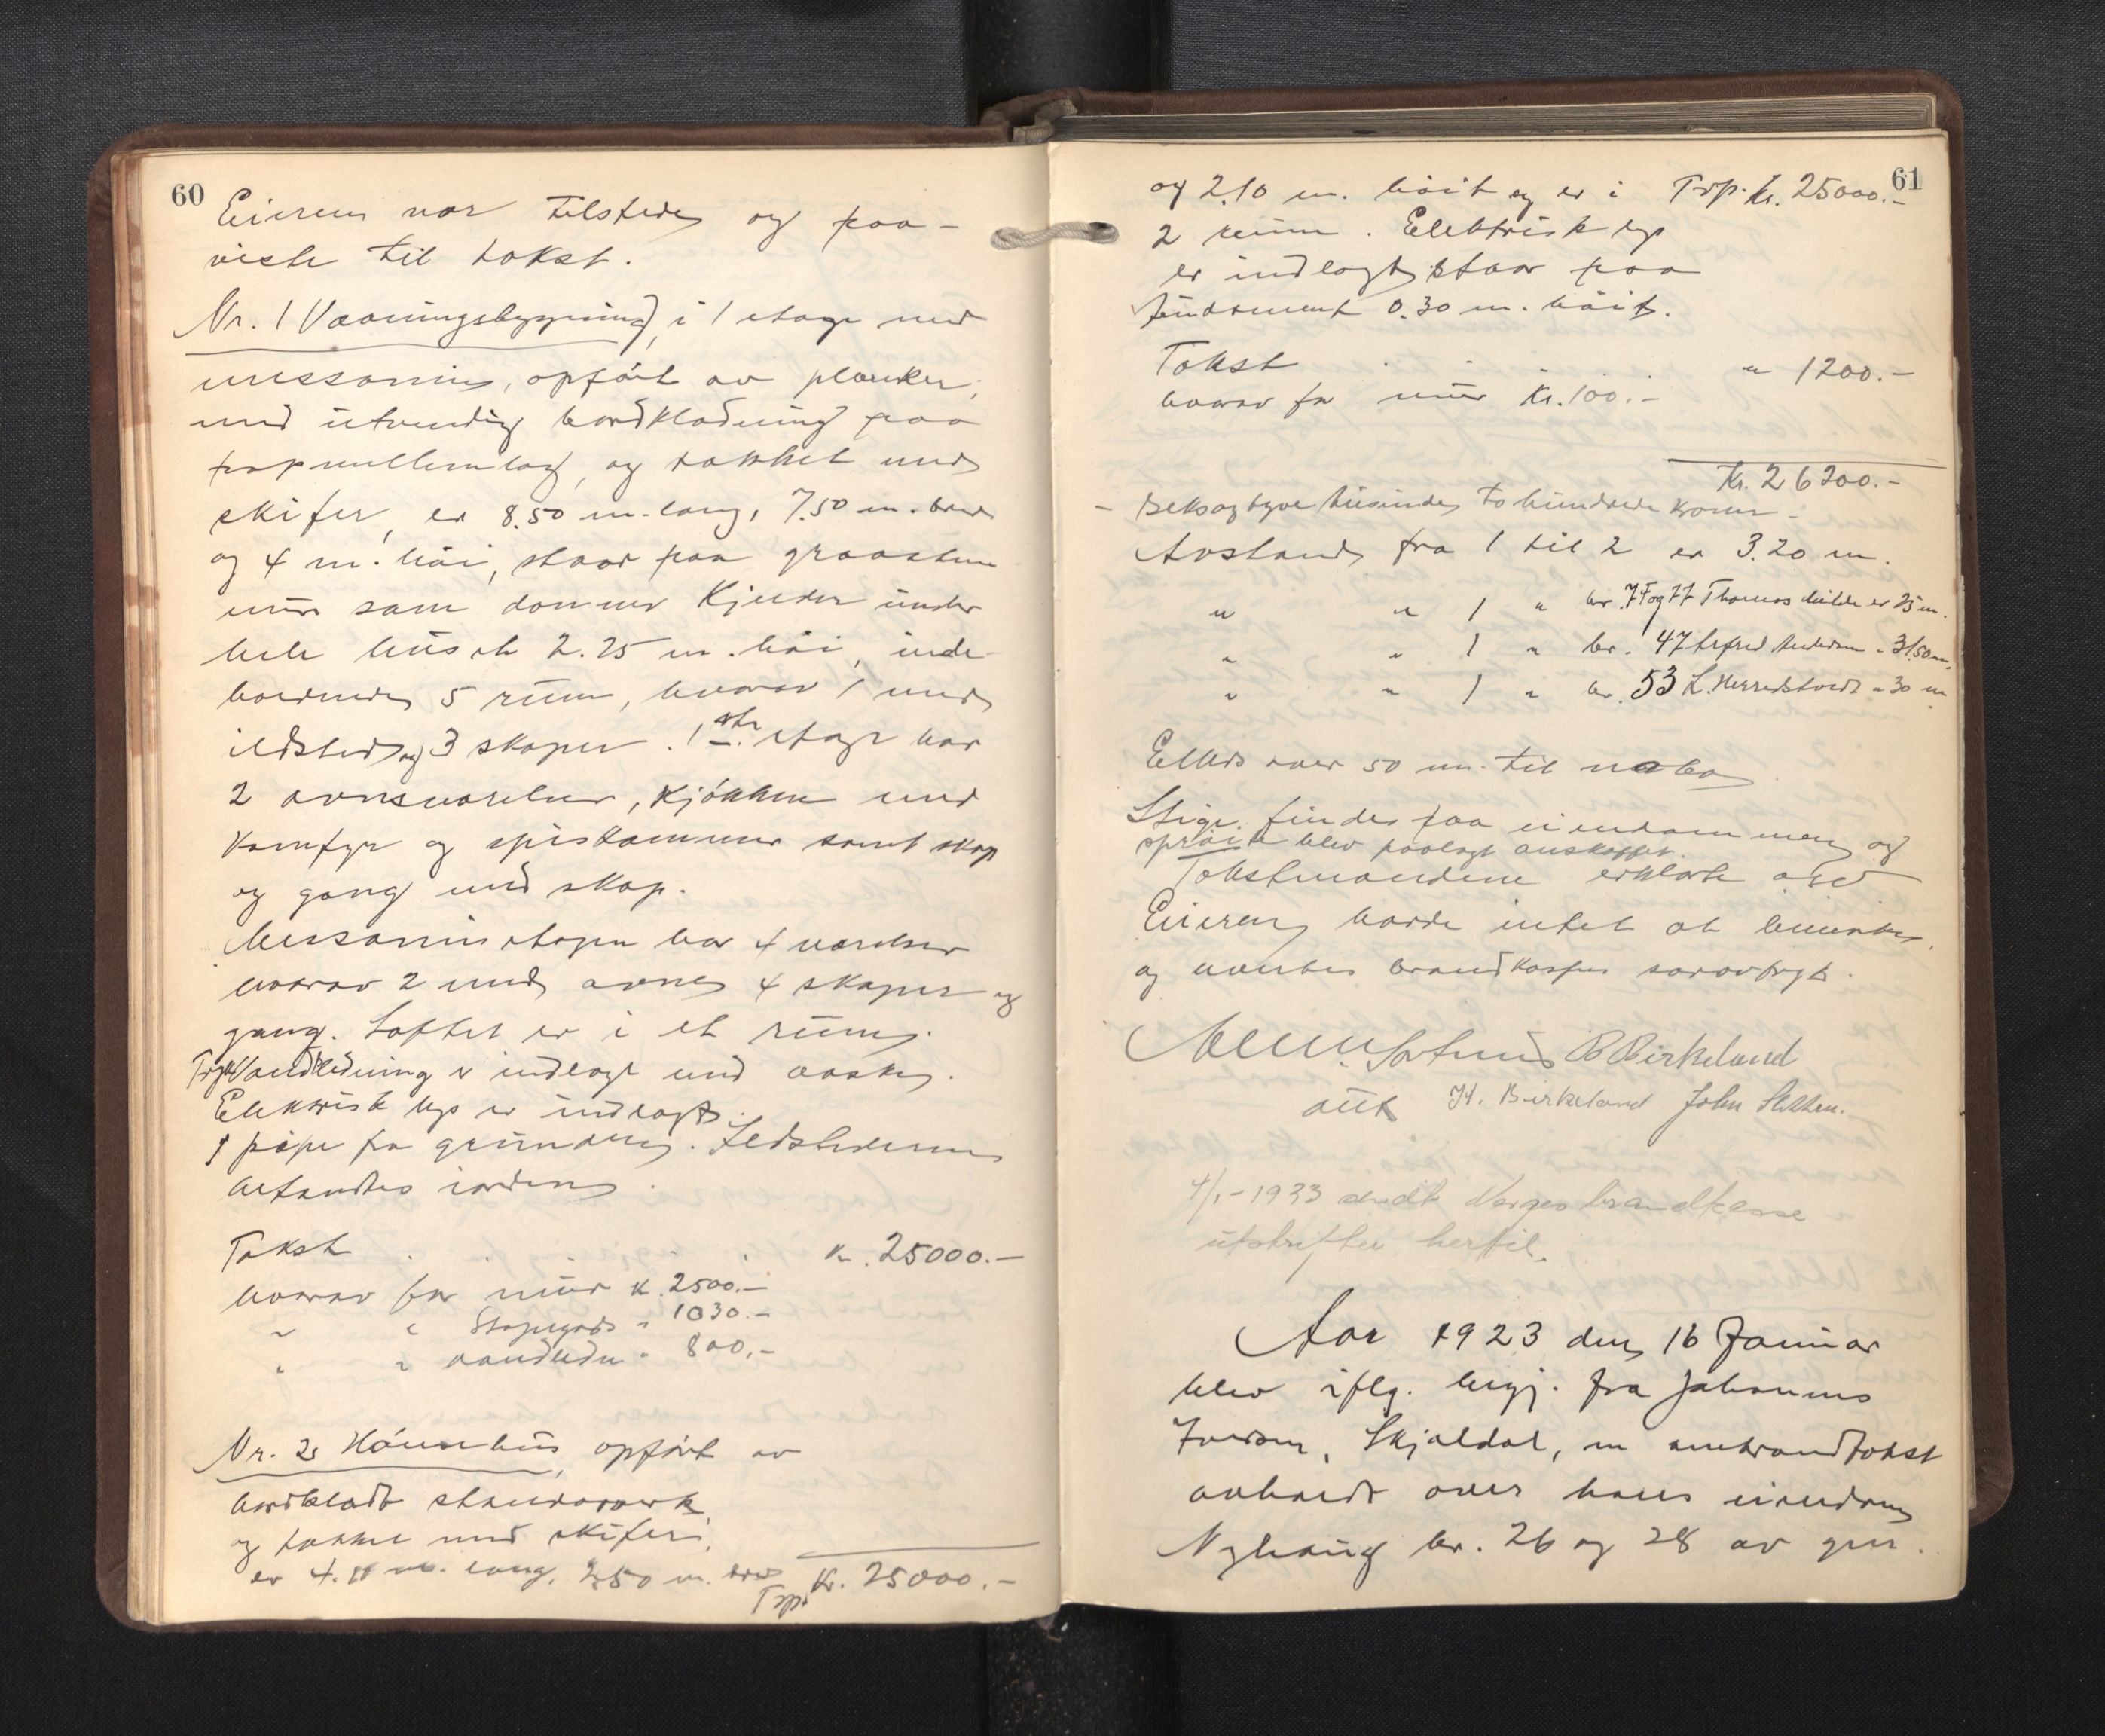 60
Eieren var tilstede og paa-
viste til takst.
Nr. 1 Vaaningsbygning, i 1 etage med
messanin, opført av planker,
med utvendig bordklædning paa
papmellemlag, og tækket med
skifer, er 8.50 m. lang, 7.50 m. bred
og 4 m. høi, staar paa graasten
mur som danner Kjelder under
hele huset 2.25 m. høi, inde-
holdende 5 rum, hvorav 1 med
ildsted og 3 skaper. 1ste etage har
2 ovnsværelser, Kjøkken med
Komfyr og spiskammer samt skap
og gang med skap.
Messanin etagen har 4 værelser
hvorav 2 med ovne, 4 skaper og
gang. Loftet er i et rum.
Tryk Vandledning er indlagt med vask.
Elektrisk lys er indlagt.
1 pipe fra grunden. Ildstederne
befandtes iorden.
Takst . . . . . Kr. 25000.-
hvorav for mur K. 2500.-
" " Støpegods " 1030.-
" " vandledn. " 800.-
Nr. 2 Hønsehus, opført av
bordklædt standerverk
og tækket med skifer,
er 4. m. lang, 2.50 m. bred
Trsp. Kr. 25000.-
61
og 2.10 m. høit og er i Trsp. Kr. 25000.-
2 rum. Elektrisk lys
er indlagt, staar paa
fundament 0.30 m. høit.
Takst . . . " 1200.-
hvorav for mur Kr. 100.-
Kr. 26200.-
- Seksogtyve tusinde to hundrede kroner -
Avstand fra 1 til 2 er 3.20 m.
" " 1 " br. 74 og 77 Thomas Milde er 25 m.
" " 1 " br. 47 Alfred Andersen " 31.50 m.
" " 1 " br. 53 L. Herredstvedt " 30 m
Ellers over 50 m. til nabo
Stige findes paa eiendommen og
sprøite blev paalagt anskaffet.
Takstmændene erklærte ased
Eieren havde intet at bemerke,
og ventes brandkassens
B Birkeland
aut H. Birkeland John
4/1-1923 sendt Norges brandkasse
utskrifter hertil.
Aar 1923 den 16 Januar
blev iflg. begj. fra Johannes
Iversen, Skjoldal, en ombrandtakst
avholdt over hans eiendom
Nyhaug br. 26 og 28 av gnr.